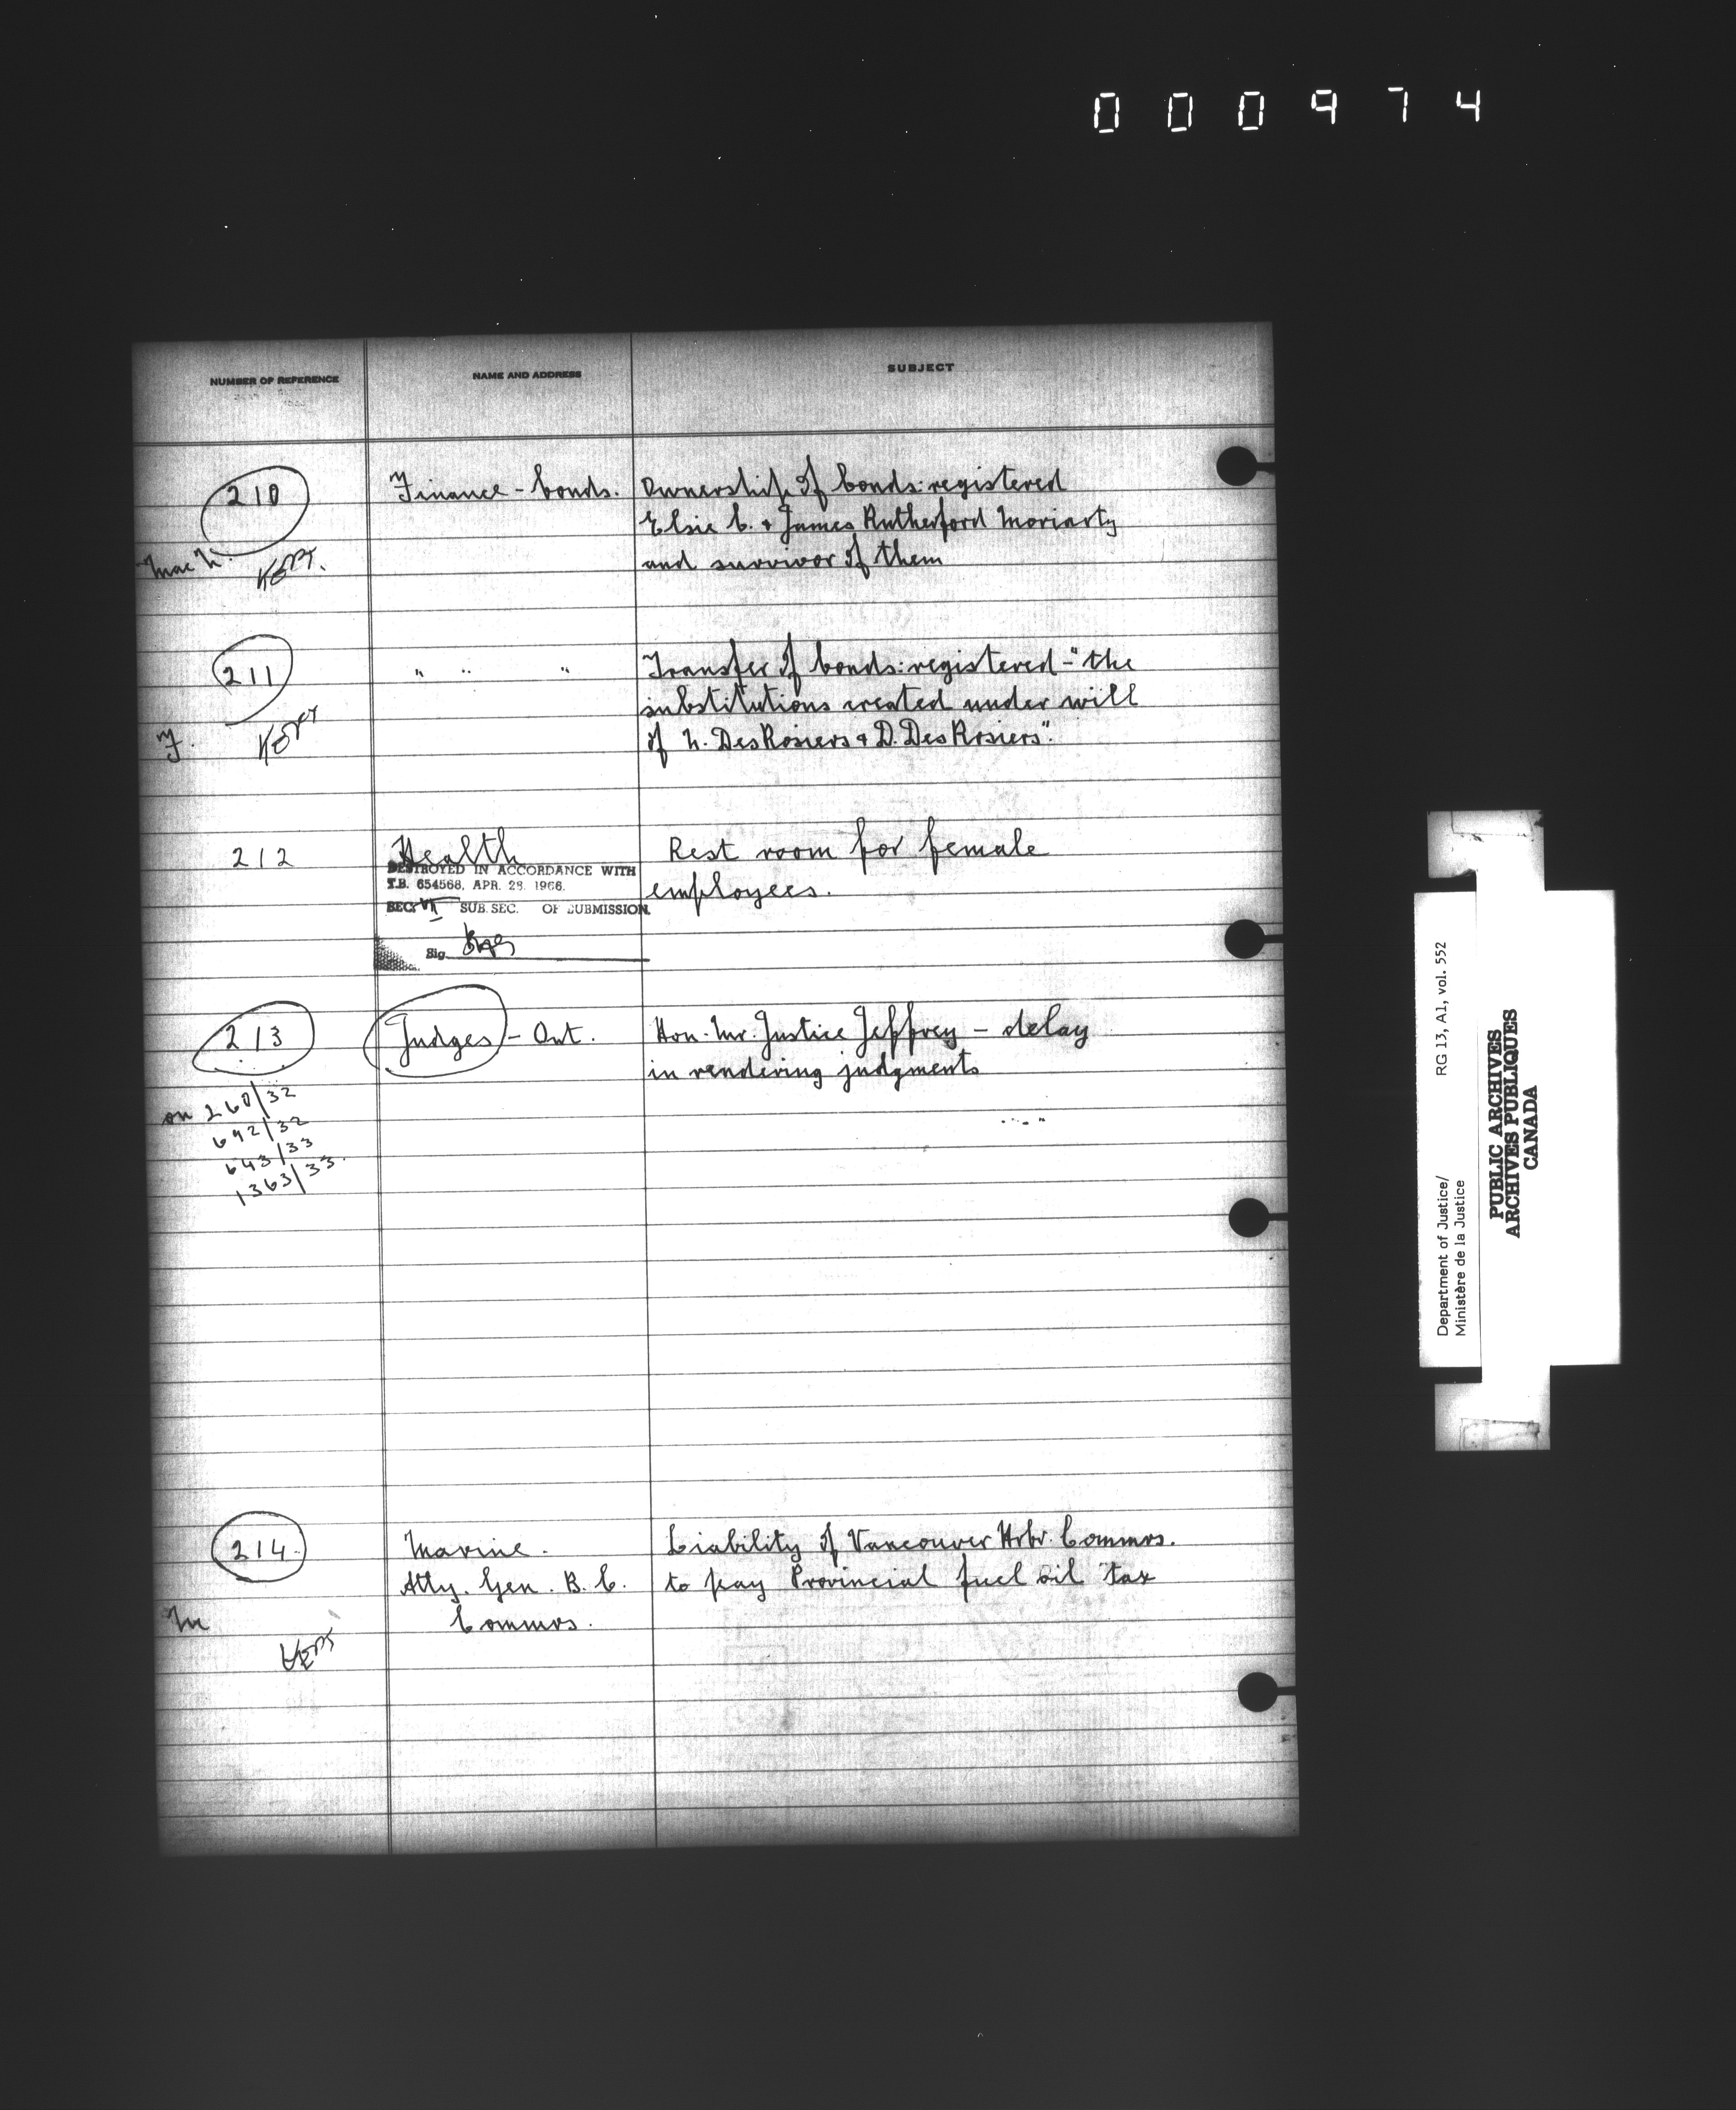 000974
NUMBER OF REFERENCE NAME AND ADDRESS SUBJECT
210 Finance - bonds. Ownership of bonds: registered
Elsie C. & James Rutherford Moriarty
Mac N. KEPT. and survivor of them
211 " " " Transfer of bonds: registered - "the
substitutions created under will
F. KEPT of N. DesRosiers & D. DesRosiers".
212 Health Rest room for female
DESTROYED IN ACCORDANCE WITH
T.B. 654568, APR. 28. 1966. employees.
SEC. VI SUB. SEC. OF SUBMISSION.
Sig.
213 Judges - Ont. Hon. Mr. Justice Jeffrey - delay
in rendering judgments
on 260/32
692/32
643/33
1363/33.
214 Marine. Liability of Vancouver Hrbr. Commrs.
Atty. Gen. B.C. to pay Provincial fuel oil tax
M Commrs.
KEPT
RG 13, A1, vol. 552
Department of Justice/
Ministère de la Justice
PUBLIC ARCHIVES
ARCHIVES PUBLIQUES
CANADA